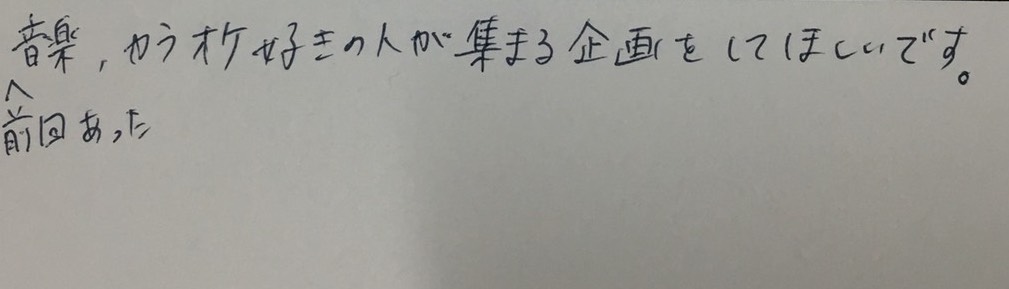 音楽,カラオケ好きの人が集まる企画をしてほしいです。
^
前回あった